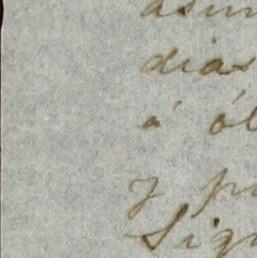 asun
dias
á ól
y pu
Sign